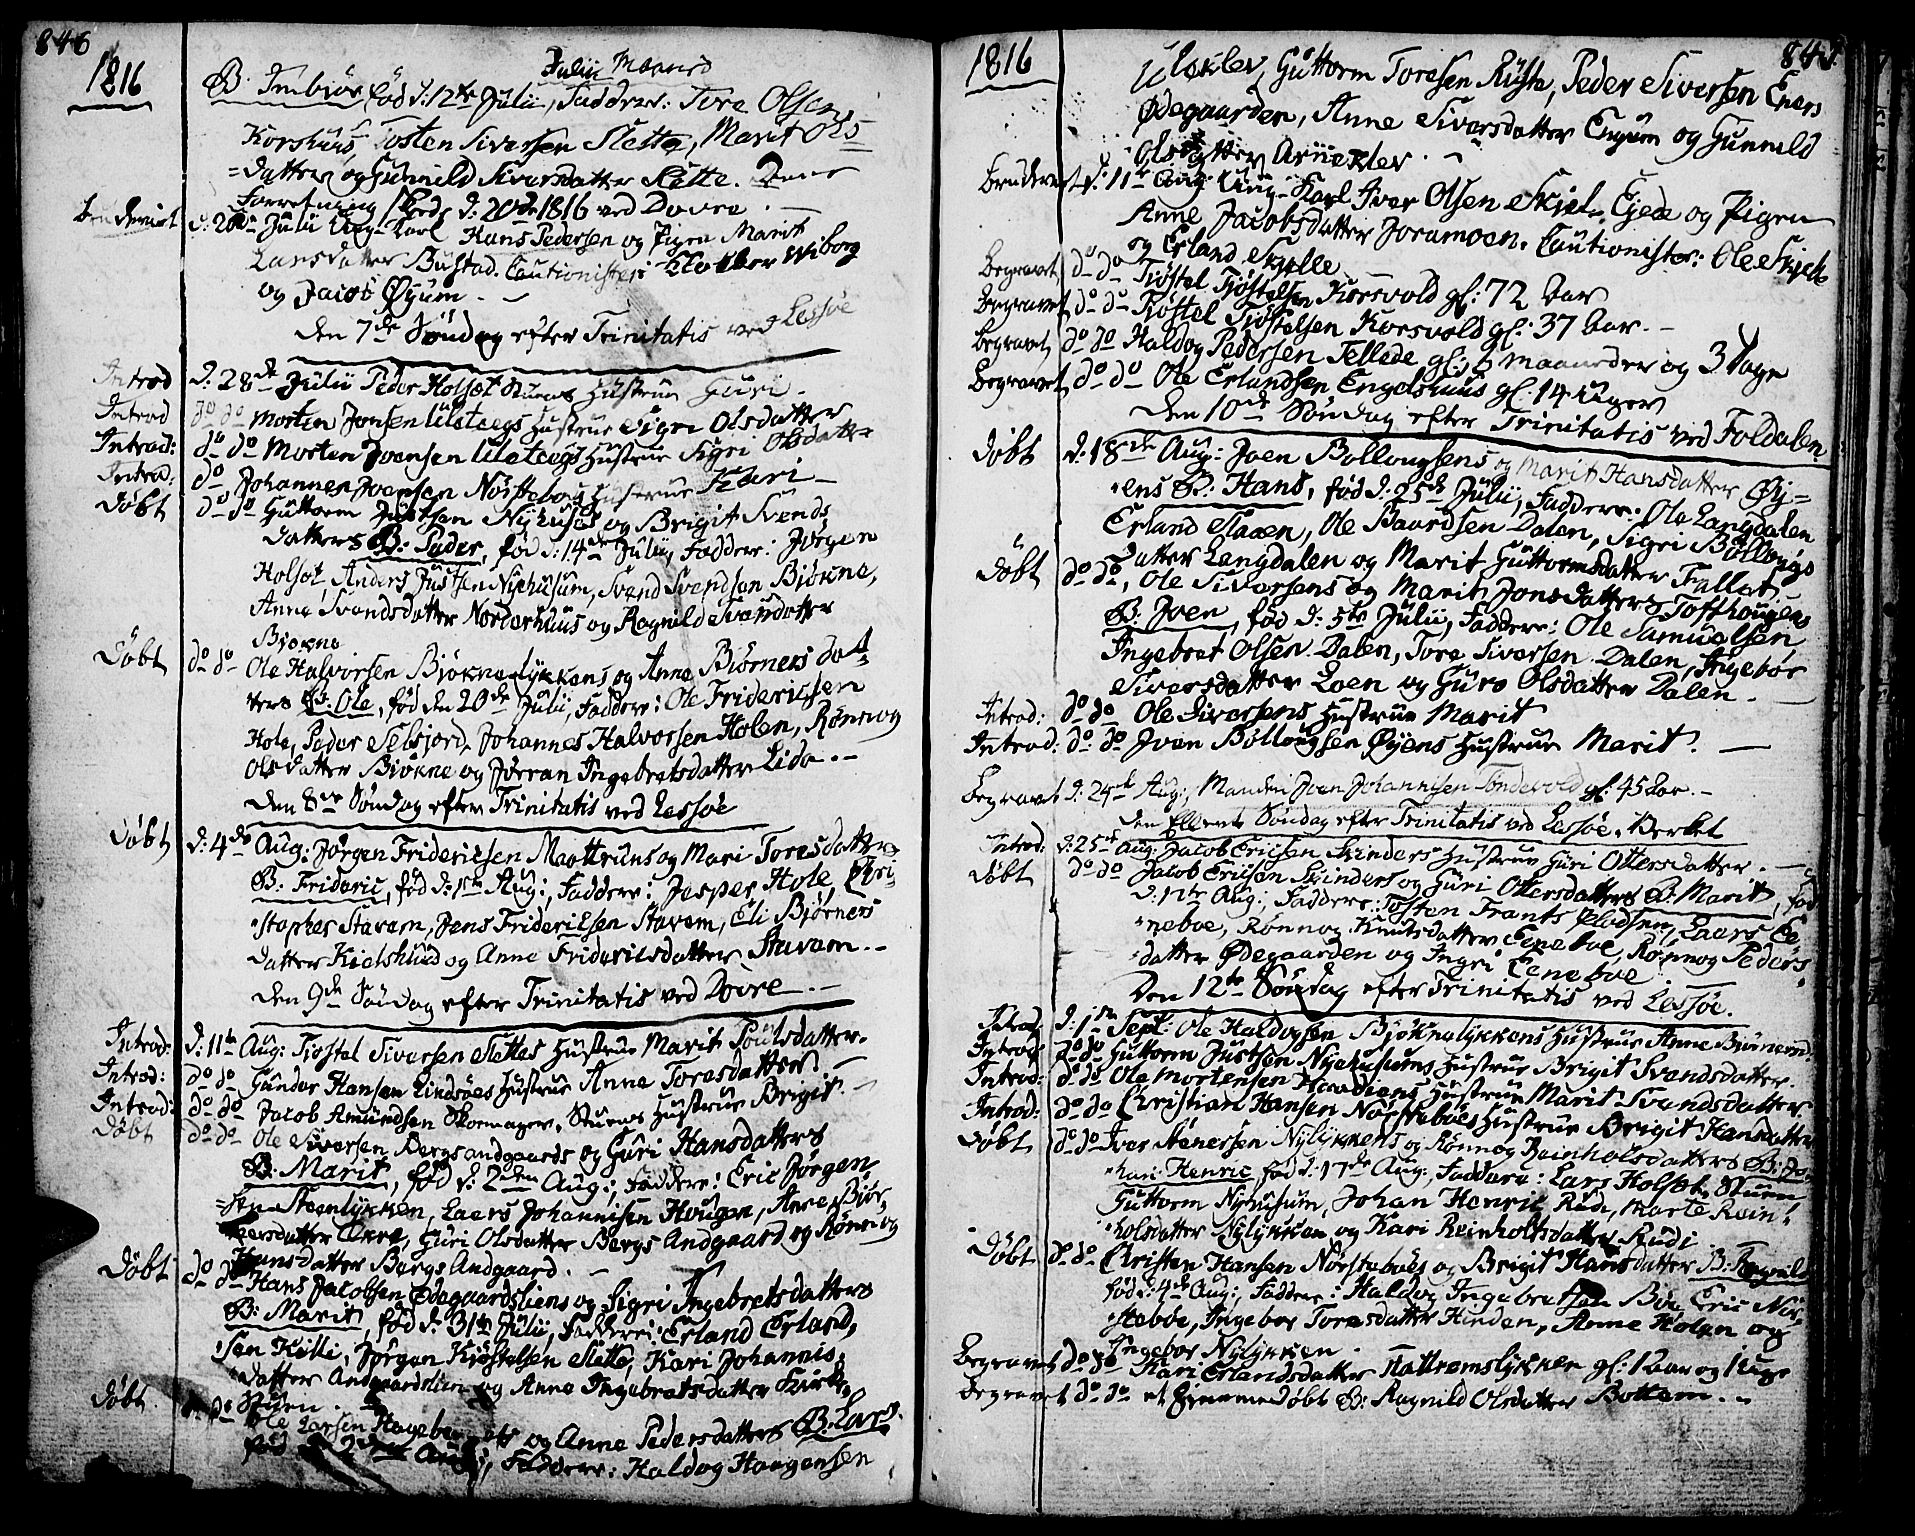 846
1816
Julii Maaned
B. Imbiør fød d: 12te Julii, Faddere: Tore Olsen
Korshuus, Tosten Siversen Slette, Marit Ols=
=datter og Gunnild Siversdatter Slette. Denne
Forretning skeede d: 20de 1816 ved Dovre.
Bruderiet d: 20de Julii Ung-Karl Hans Pedersen og Pigen Marit
Larsdatter Bustad. Cautionister: Klokker Wiborg
og Jacob Øyum. -
den 7de Søndag efter Trinitatis ved Lessøe
Introd d: 28de Julii Peder Holset Stuens Hustrue Guri.
Introd do do Morten Jonsen Ulsteegs Hustrue Sigri Olsdatter
Introd: do do Morten Joensen Ulsteegs Hustrue Sigri Olsdatter
Introd: do Johannes Joensen Nørsteboes Hustrue Kari -
Døbt do do Guttorm Justsen Nyhuses og Brigit Svends
datters B: Peder, fød d: 14de Julii, Faddere: Jørgen
Holset, Anders Justsen Nyehusum, Svend Svendsen Biøkne,
Anne Svendsdatter Norderhuus og Ragnild Svendatter
Biøkne
Døbt do do Ole Halvorsen Biøknelykkens og Anne Biørnersdat
ters B. Ole, fød den 20de Julii, Faddere: Ole Friderichsen
Hole, Peder Selsjord, Johannes Halvorsen Holen, Rønnog
Olsdatter Biøkne og Jørran Ingebretsdatter Lido. -
den 8de Søndag efter Trinitatis ved Lessøe
Døbt d: 4de Aug: Jørgen Fridericsen og Mari Toresdatters
B. Frideric, fød d: 1ste Aug:, Faddere: Jesper Hole, Chri=
=stopher Stavem, Jens Friderichsen Stavem, Eli Bjørners
datter Kielshuud og Anne Fridericsdatter Stavem. -
den 9de Søndag efter Trinitatis ved Dovre. -
Introd: d: 11te Aug: Tjøstel Siversen Slettes Hustrue Marit Poulsdatter.
Introd: do do Gunder Hansen Lindsøes Hustrue Anne Toresdatter -
Introd: do do Jacob Amundsen Skoemager, Stuens Hustrue Brigit. -
Døbt do do Ole Siversen Bergsandgaards og Guri Hansdatters
B. Marit, fød d: 2den Aug:, Faddere: Eric Jørgen=
=sen Steenlykken, Laers Johannisen Hougen, Anne Biør=
nersdatter Økre, Guri Olsdatter Bergs Andgaard og Rønnog
Hansdatter Bergs Andgaard. -
Døbt do do Hans Jacobsen Ødegaardsliens og Sigri Ingebretsdatters
B: Marit, fød d: 31te Julii, Faddere: Erland Erland=
=sen Kille, Jørgen Kjøstelsen Slette, Kari Johannis=
=datter Andgaardslien og Anne Ingebretsdatter
Stuen.
Døbt do do Ole Larsen og Anne Pedersdatters B. Lars.
fød d: 2den Aug:, Faddere: Haldog Haagensen
1816
847.
Guttorm Toresen Ryste, Peder Siversen Eners
Ødegaarden, Anne Siversdatter Enyum og Gunneld
Olsdatter Arneklev. -
Bruderet d: 11te Aug: Ung-Karl Iver Olsen Skjel, Ejede og Pigen
Anne Jacobsdatter Joramoen. Cautionister: Ole Skjelle
og Erland Skjelle -
Begravet do do Tjøstel Tjøstelsen Korsvold gl: 72 Aar
Begravet do do Tjøstel Tjøstelsen Korsvold gl: 37 Aar. -
Begravet do do Haldog Pedersen Tellede gl: 5 Maaneder og 3 Dage
Begravet do do Ole Erlandsen Engelshuus gl. 14 Uger
den 10de Søndag efter Trinitatis ved Foldalen.
Døbt d: 18de Aug: Joen Bollougsens og Marit Hansdatter Øy=
=ens B: Hans, fød d: 25de Julii, Faddere: Ole Langdalen
Erland Slaaen, Ole Baardsen Dalen, Sigri Bollougs
Datter Langdalen og Marit Guttormsdatter Fallet. -
Døbt do do, Ole Siversens og Marit Jonsdatters Tofthougens
B: Joen, fød d: 5te Julii, Faddere: Ole Samuelsen
Ingebret Olsen Dalen, Tore Siversen Dalen, Ingebor
Siversdatter Loen og Guro Olsdatter Dalen -
Introd: do do Ole Siversens Hustrue Marit
Introd: do: do Joen Bollougsen Øyens Hustrue Marit. -
Begravet d: 24de Aug:, Manden Joen Johannisen Tondevold gl: 45 Aar. -
den Ellevte Søndag efter Trinitatis ved Lessøe-Verket
Introd: d: 25de Aug: Jacob Ericsen Skinders Hustrue Guri Ottersdatter. -
Døbt do do Jacob Ericsen Skinders og Guri Ottersdatters B: Marit, fød
d: 12te Aug:, Faddere: Tosten Frants Pladsen, Laers Ee=
=neboe, Rønnog Knutsdatter Eeneboe, Rønnog Peders
=datter Ødegaarden og Ingri Eeneboe
Den 12te Søndag efter Trinitatis ved Lessøe.
Introd d: 1ste Sept: Ole Haldogsen Bjøknelykkens Hustrue Anne Biørnersd:
Introd: do do Guttorm Justsen Nyehusums Hustrue Brigit Svendsdatter.
Introd: do do Ole Mortensen Hustrue Marit Svendsdatter
Introd: do do Christian Hansen Nørsteboes Hustrue Brigit Hansdatter
Døbt do do Iver Stenersen Nylykkens og Rønnog Reinholsdatters B: Jo=
=han Henric, fød d: 17de Aug: Faddere: Lars Holset Stuen
Guttorm Nyhusum, Johan Henric Rudi, Marte Rein=
=holsdatter Nylykken og Kari Reinholtsdatter Rudi.
Døbt do do Christen Hansen Nørsteboes og Brigit Hansdatter B: Ragnild
fød d: 4de Aug:, Faddere: Haldog Ingebretsen Bøe, Eric Nør=
=steboe, Ingebor Toresdatter Hinden, Anne Holen og
Ingebor Nylykken.
Begravet do do Kari Erlandsdatter Kattromslykken gl: 1 Aar og 1 Uge
Begravet do do et Hiemmedøbt B: Ragnild Olsdatter Bottem. -